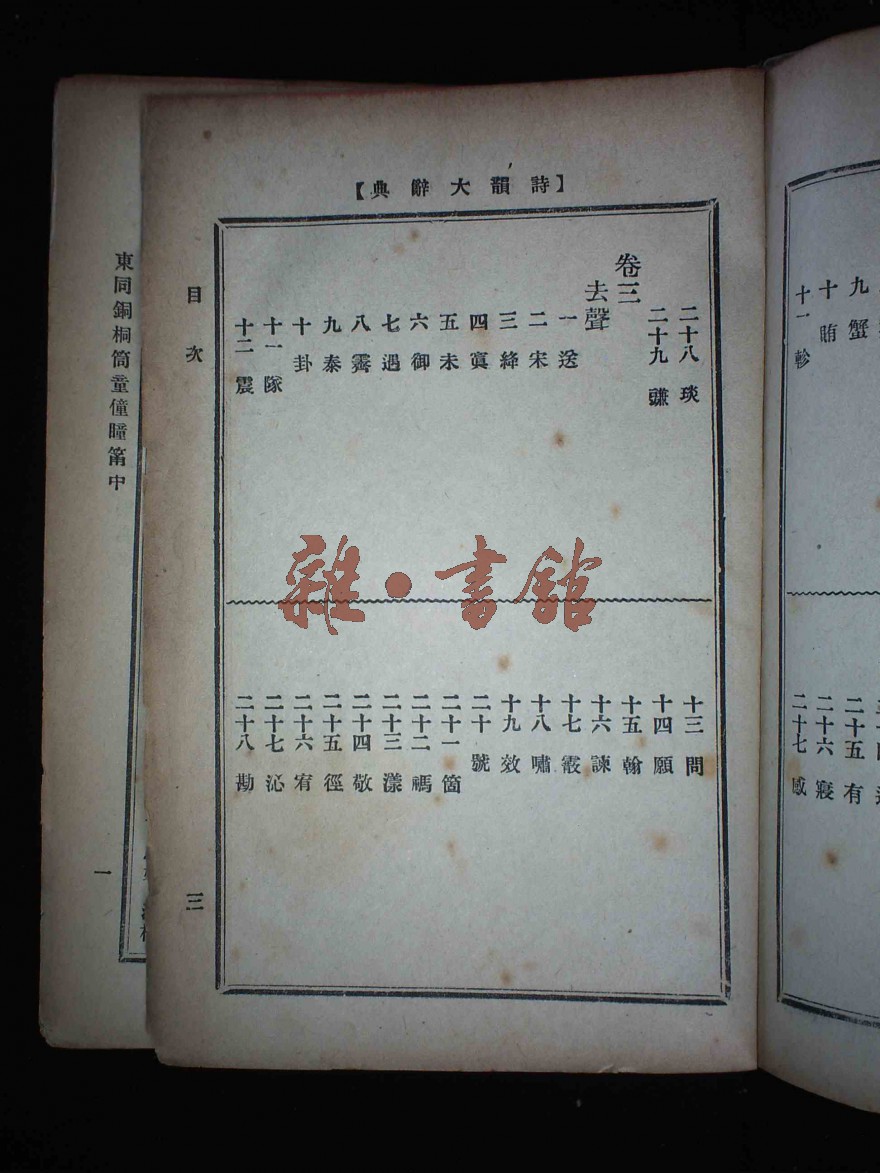 【詩韻大辭典】
二十八 琰
二十九 豏
卷三
去聲
一 送
二 宋
三 絳
四 寘
五 未
六 御
七 遇
八 霽
九 泰
十 卦
十一 隊
十二 震
十三 問
十四 願
十五 翰
十六 諫
十七 霰
十八 嘯
十九 效
二十 號
二十一 箇
二十二 禡
二十三 漾
二十四 敬
二十五 徑
二十六 宥
二十七 沁
二十八 勘
目次
三
九 蟹
十 賄
十一 軫
二十五 有
二十六 寢
二十七 感
東同銅桐筒童僮瞳筩中
一
雜·書館